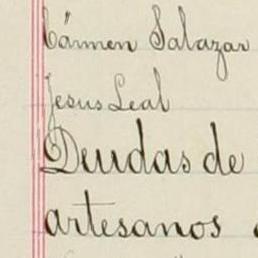 Cármen Salazar
Jesus Leal
Deudas de
artesanos